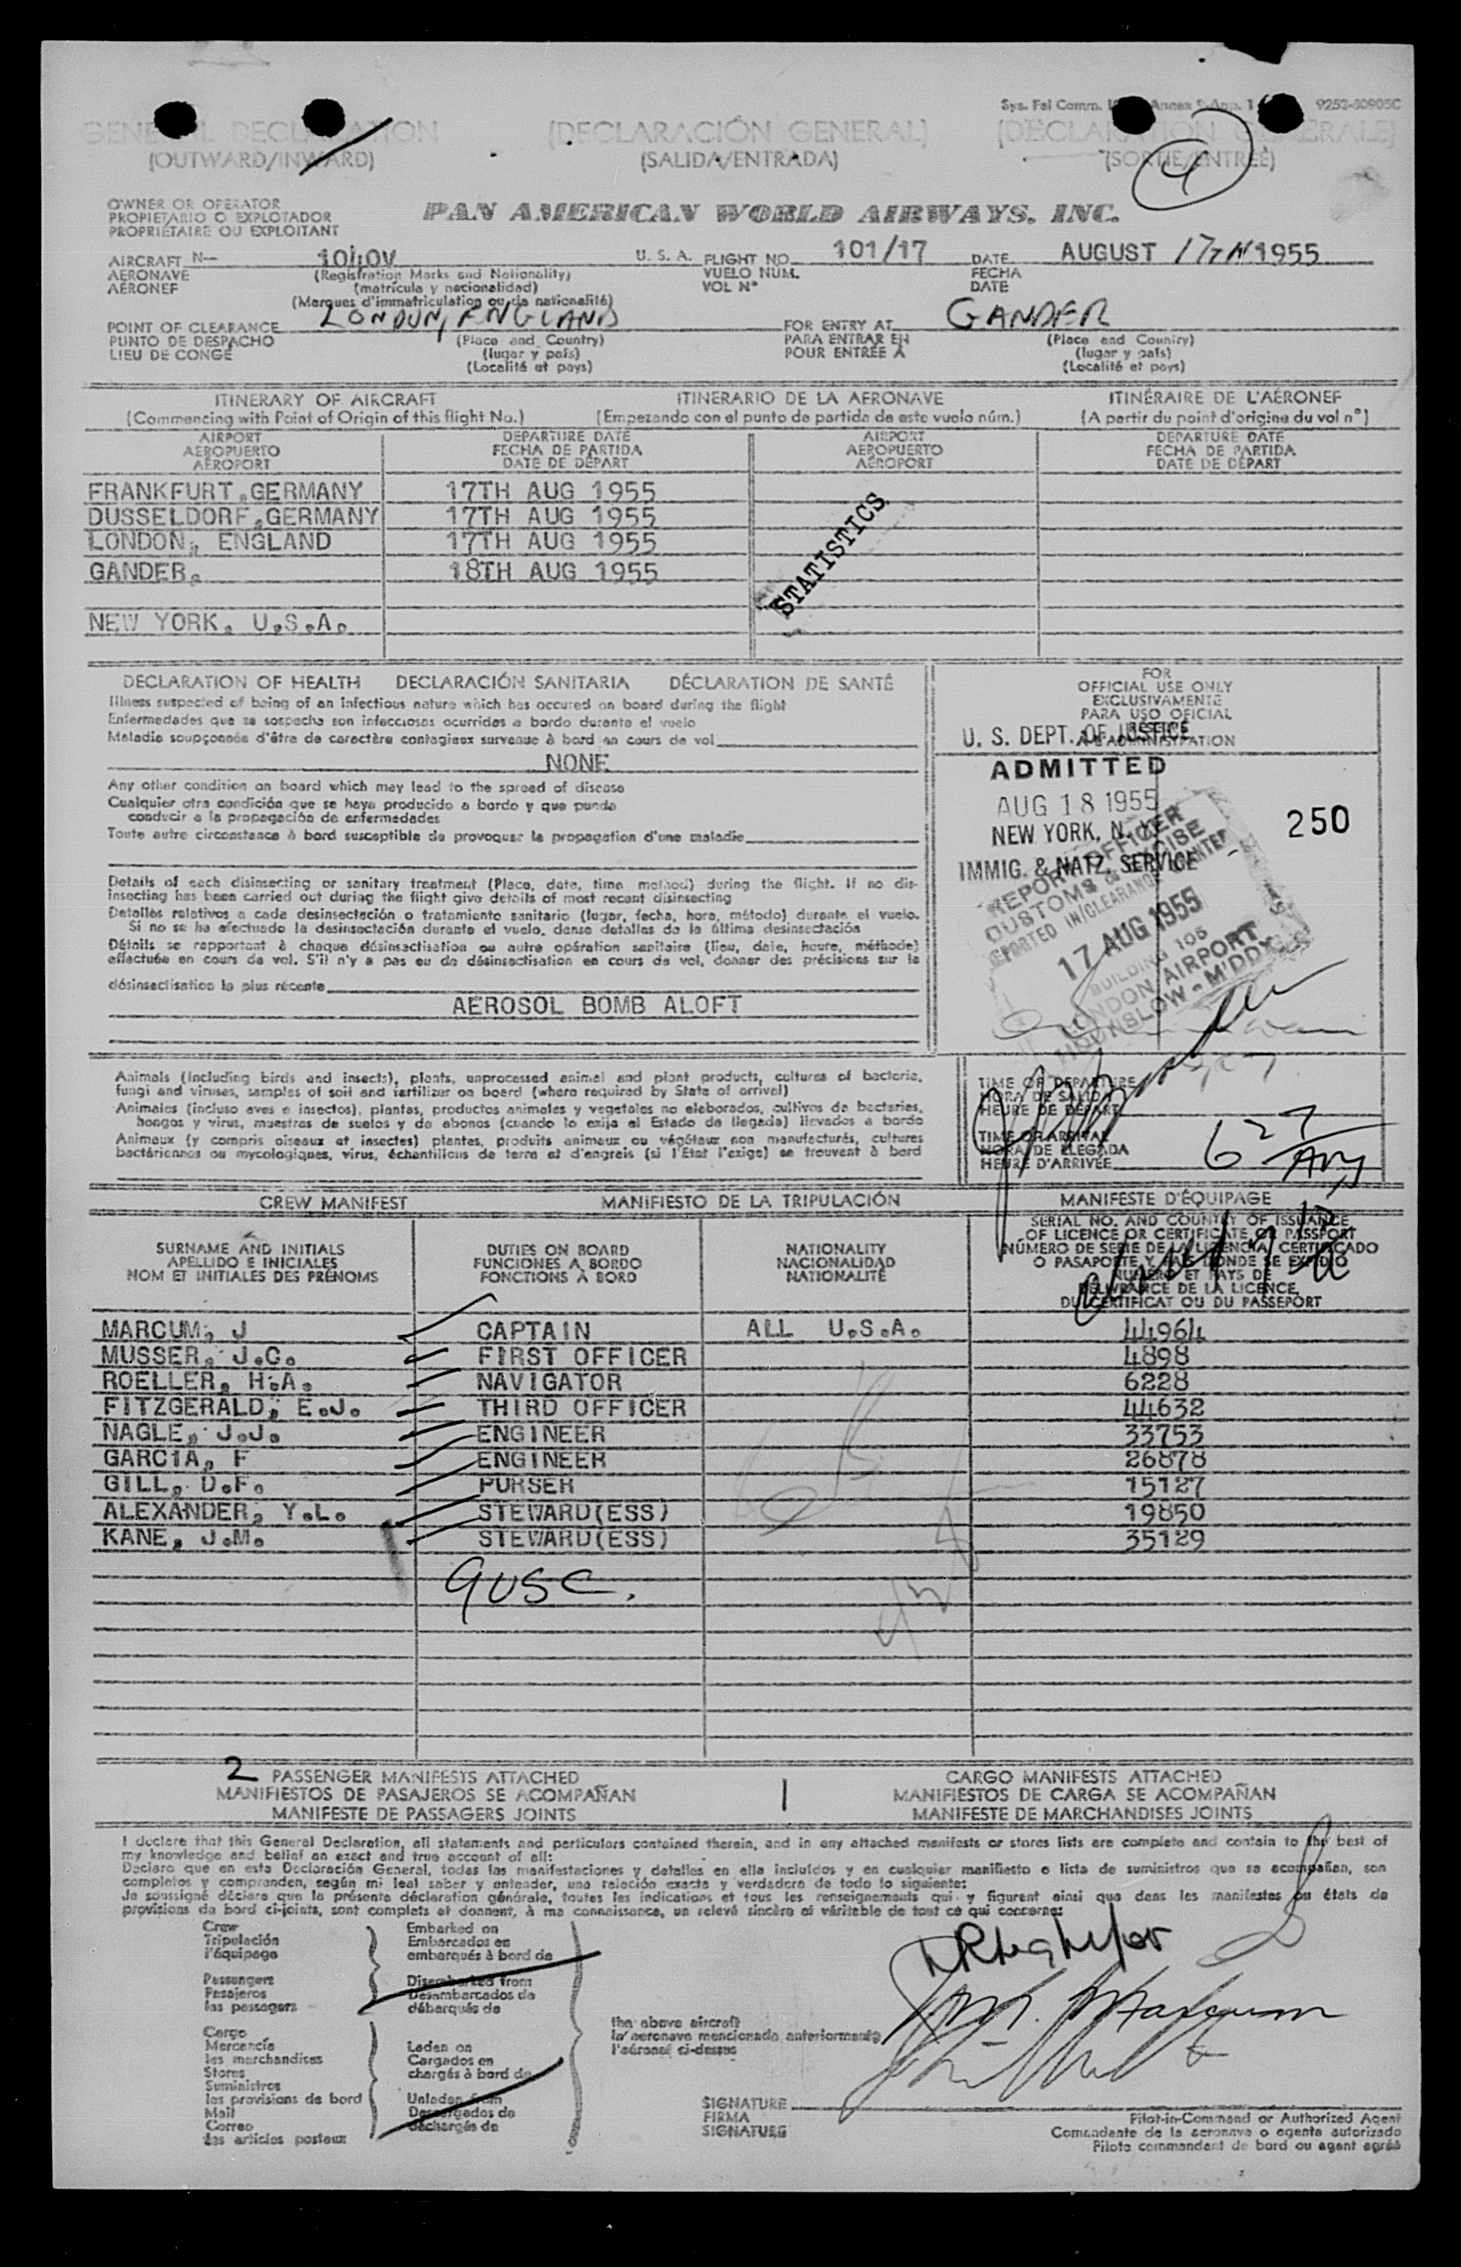 Sys. Fel Comm. Annex 9253-80905C
GENERAL DECLARATION (DECLARACIÓN GENERAL) (DÉCLARATION GÉNÉRALE)
(OUTWARD/INWARD) (SALIDA/ENTRADA) (SORTIE/ENTRÉE)
4
OWNER OR OPERATOR
PROPIETARIO O EXPLOTADOR
PROPRIÉTAIRE OU EXPLOITANT
PAN AMERICAN WORLD AIRWAYS, INC.
AIRCRAFT N— 1040V U. S. A. FLIGHT NO. 101/17 DATE AUGUST 17TH 1955
AERONAVE (Registration Marks and Nationality) VUELO NÚM. FECHA
AÉRONEF (matrícula y nacionalidad) VOL N° DATE
(Marques d'immatriculation ou de nationalité)
POINT OF CLEARANCE LONDON, ENGLAND FOR ENTRY AT GANDER
PUNTO DE DESPACHO (Place and Country) PARA ENTRAR EN (Place and Country)
LIEU DE CONGÉ (lugar y país) POUR ENTRÉE À (lugar y país)
(Localité et pays) (Localité et pays)
ITINERARY OF AIRCRAFT ITINERARIO DE LA AERONAVE ITINÉRAIRE DE L'AÉRONEF
(Commencing with Point of Origin of this flight No.) (Empezando con el punto de partida de este vuelo núm.) (A partir du point d'origine du vol n°)
AIRPORT DEPARTURE DATE AIRPORT DEPARTURE DATE
AEROPUERTO FECHA DE PARTIDA AEROPUERTO FECHA DE PARTIDA
AÉROPORT DATE DE DÉPART AÉROPORT DATE DE DÉPART
FRANKFURT,GERMANY 17TH AUG 1955
DUSSELDORF,GERMANY 17TH AUG 1955
LONDON, ENGLAND 17TH AUG 1955
GANDER, 18TH AUG 1955
NEW YORK, U.S.A.
STATISTICS
DECLARATION OF HEALTH DECLARACIÓN SANITARIA DÉCLARATION DE SANTÉ
Illness suspected of being of an infectious nature which has occured on board during the flight
Enfermedades que se sospecha son infecciosas ocurridas a bordo durante el vuelo
Maladie soupçonnée d'être de caractère contagieux survenue à bord en cours de vol
NONE
Any other condition on board which may lead to the spread of disease
Cualquier otra condición que se haya producido a bordo y que pueda
conducir a la propagación de enfermedades
Toute autre circonstance à bord susceptible de provoquer la propagation d'une maladie
Details of each disinsecting or sanitary treatment (Place, date, time method) during the flight. If no dis-
insecting has been carried out during the flight give details of most recent disinsecting
Detalles relativos a cada desinsectación o tratamiento sanitario (lugar, fecha, hora, método) durante el vuelo.
Si no se ha efectuado la desinsectación durante el vuelo, dense detalles de la última desinsectación
Détails se rapportant à chaque désinsectisation ou autre opération sanitaire (lieu, date, heure, méthode)
effectuée en cours de vol. S'il n'y a pas eu de désinsectisation en cours de vol, donner des précisions sur la
désinsectisation la plus récente
AEROSOL BOMB ALOFT
FOR
OFFICIAL USE ONLY
EXCLUSIVAMENTE
PARA USO OFICIAL
U. S. DEPT. OF JUSTICE
ADMITTED
AUG 18 1955
NEW YORK, N. Y.
IMMIG. & NATZ. SERVICE
250
REPORT OFFICER
CUSTOMS & EXCISE
REPORTED IN/CLEARANCE GRANTED
17 AUG 1955
BUILDING 105
LONDON AIRPORT
HOUNSLOW - MIDDX.
Animals (including birds and insects), plants, unprocessed animal and plant products, cultures of bacteria,
fungi and viruses, samples of soil and fertilizer on board (where required by State of arrival)
Animales (incluso aves e insectos), plantas, productos animales y vegetales no elaborados, cultivos de bacterias,
hongos y virus, muestras de suelos y de abonos (cuando lo exija el Estado de llegada) llevados a bordo
Animaux (y compris oiseaux et insectes) plantes, produits animaux ou végétaux non manufacturés, cultures
bactériennes ou mycologiques, virus, échantillons de terre et d'engrais (si l'État l'exige) se trouvent à bord
TIME OF DEPARTURE
HORA DE SALIDA
HEURE DE DÉPART
TIME OF ARRIVAL
HORA DE LLEGADA
HEURE D'ARRIVÉE
6 27
CREW MANIFEST MANIFIESTO DE LA TRIPULACIÓN MANIFESTE D'ÉQUIPAGE
SURNAME AND INITIALS DUTIES ON BOARD NATIONALITY
APELLIDO E INICIALES FUNCIONES A BORDO NACIONALIDAD
NOM ET INITIALES DES PRÉNOMS FONCTIONS À BORD NATIONALITÉ
SERIAL NO. AND COUNTRY OF ISSUANCE
OF LICENCE OR CERTIFICATE OR PASSPORT
NÚMERO DE SERIE DE LA LICENCIA, CERTIFICADO
O PASAPORTE Y PAÍS DONDE SE EXPIDIÓ
NUMÉRO ET PAYS DE
DÉLIVRANCE DE LA LICENCE,
DU CERTIFICAT OU DU PASSEPORT
MARCUM, J CAPTAIN ALL U.S.A. 44964
MUSSER, J.C. FIRST OFFICER 4898
ROELLER, H.A. NAVIGATOR 6228
FITZGERALD, E.J. THIRD OFFICER 44632
NAGLE, J.J. ENGINEER 33753
GARCIA, F ENGINEER 26878
GILL, D.F. PURSER 15127
ALEXANDER, Y.L. STEWARD(ESS) 19850
KANE, J.M. STEWARD(ESS) 35129
9 USC.
2 PASSENGER MANIFESTS ATTACHED 1 CARGO MANIFESTS ATTACHED
MANIFIESTOS DE PASAJEROS SE ACOMPAÑAN MANIFIESTOS DE CARGA SE ACOMPAÑAN
MANIFESTE DE PASSAGERS JOINTS MANIFESTE DE MARCHANDISES JOINTS
I declare that this General Declaration, all statements and particulars contained therein, and in any attached manifests or stores lists are complete and contain to the best of
my knowledge and belief an exact and true account of all:
Declaro que en esta Declaración General, todas las manifestaciones y detalles en ella incluídos y en cualquier manifiesto o lista de suministros que se acompañan, son
completos y comprenden, según mi leal saber y entender, una relación exacta y verdadera de todo lo siguiente:
Je soussigné déclare que la présente déclaration générale, toutes les indications et tous les renseignements qui y figurent ainsi que dans les manifestes ou états de
provisions de bord ci-joints, sont complets et donnent, à ma connaissance, un relevé sincère et véritable de tout ce qui concerne:
Crew Embarked on
Tripulación Embarcados en
l'équipage embarqués à bord de
Passengers Disembarked from
Pasajeros Desembarcados de
les passagers débarqués de
the above aircraft
la aeronave mencionada anteriormente
l'aéronef ci-dessus
Cargo
Mercancía Laden on
les marchandises Cargados en
Stores chargés à bord de
Suministros
les provisions de bord Unladen from
Mail Descargados de
Correo déchargés de
les articles postaux
J.M. Marcum
SIGNATURE
FIRMA
SIGNATURE
Pilot-in-Command or Authorized Agent
Comandante de la aeronave o agente autorizado
Pilote commandant de bord ou agent agréé